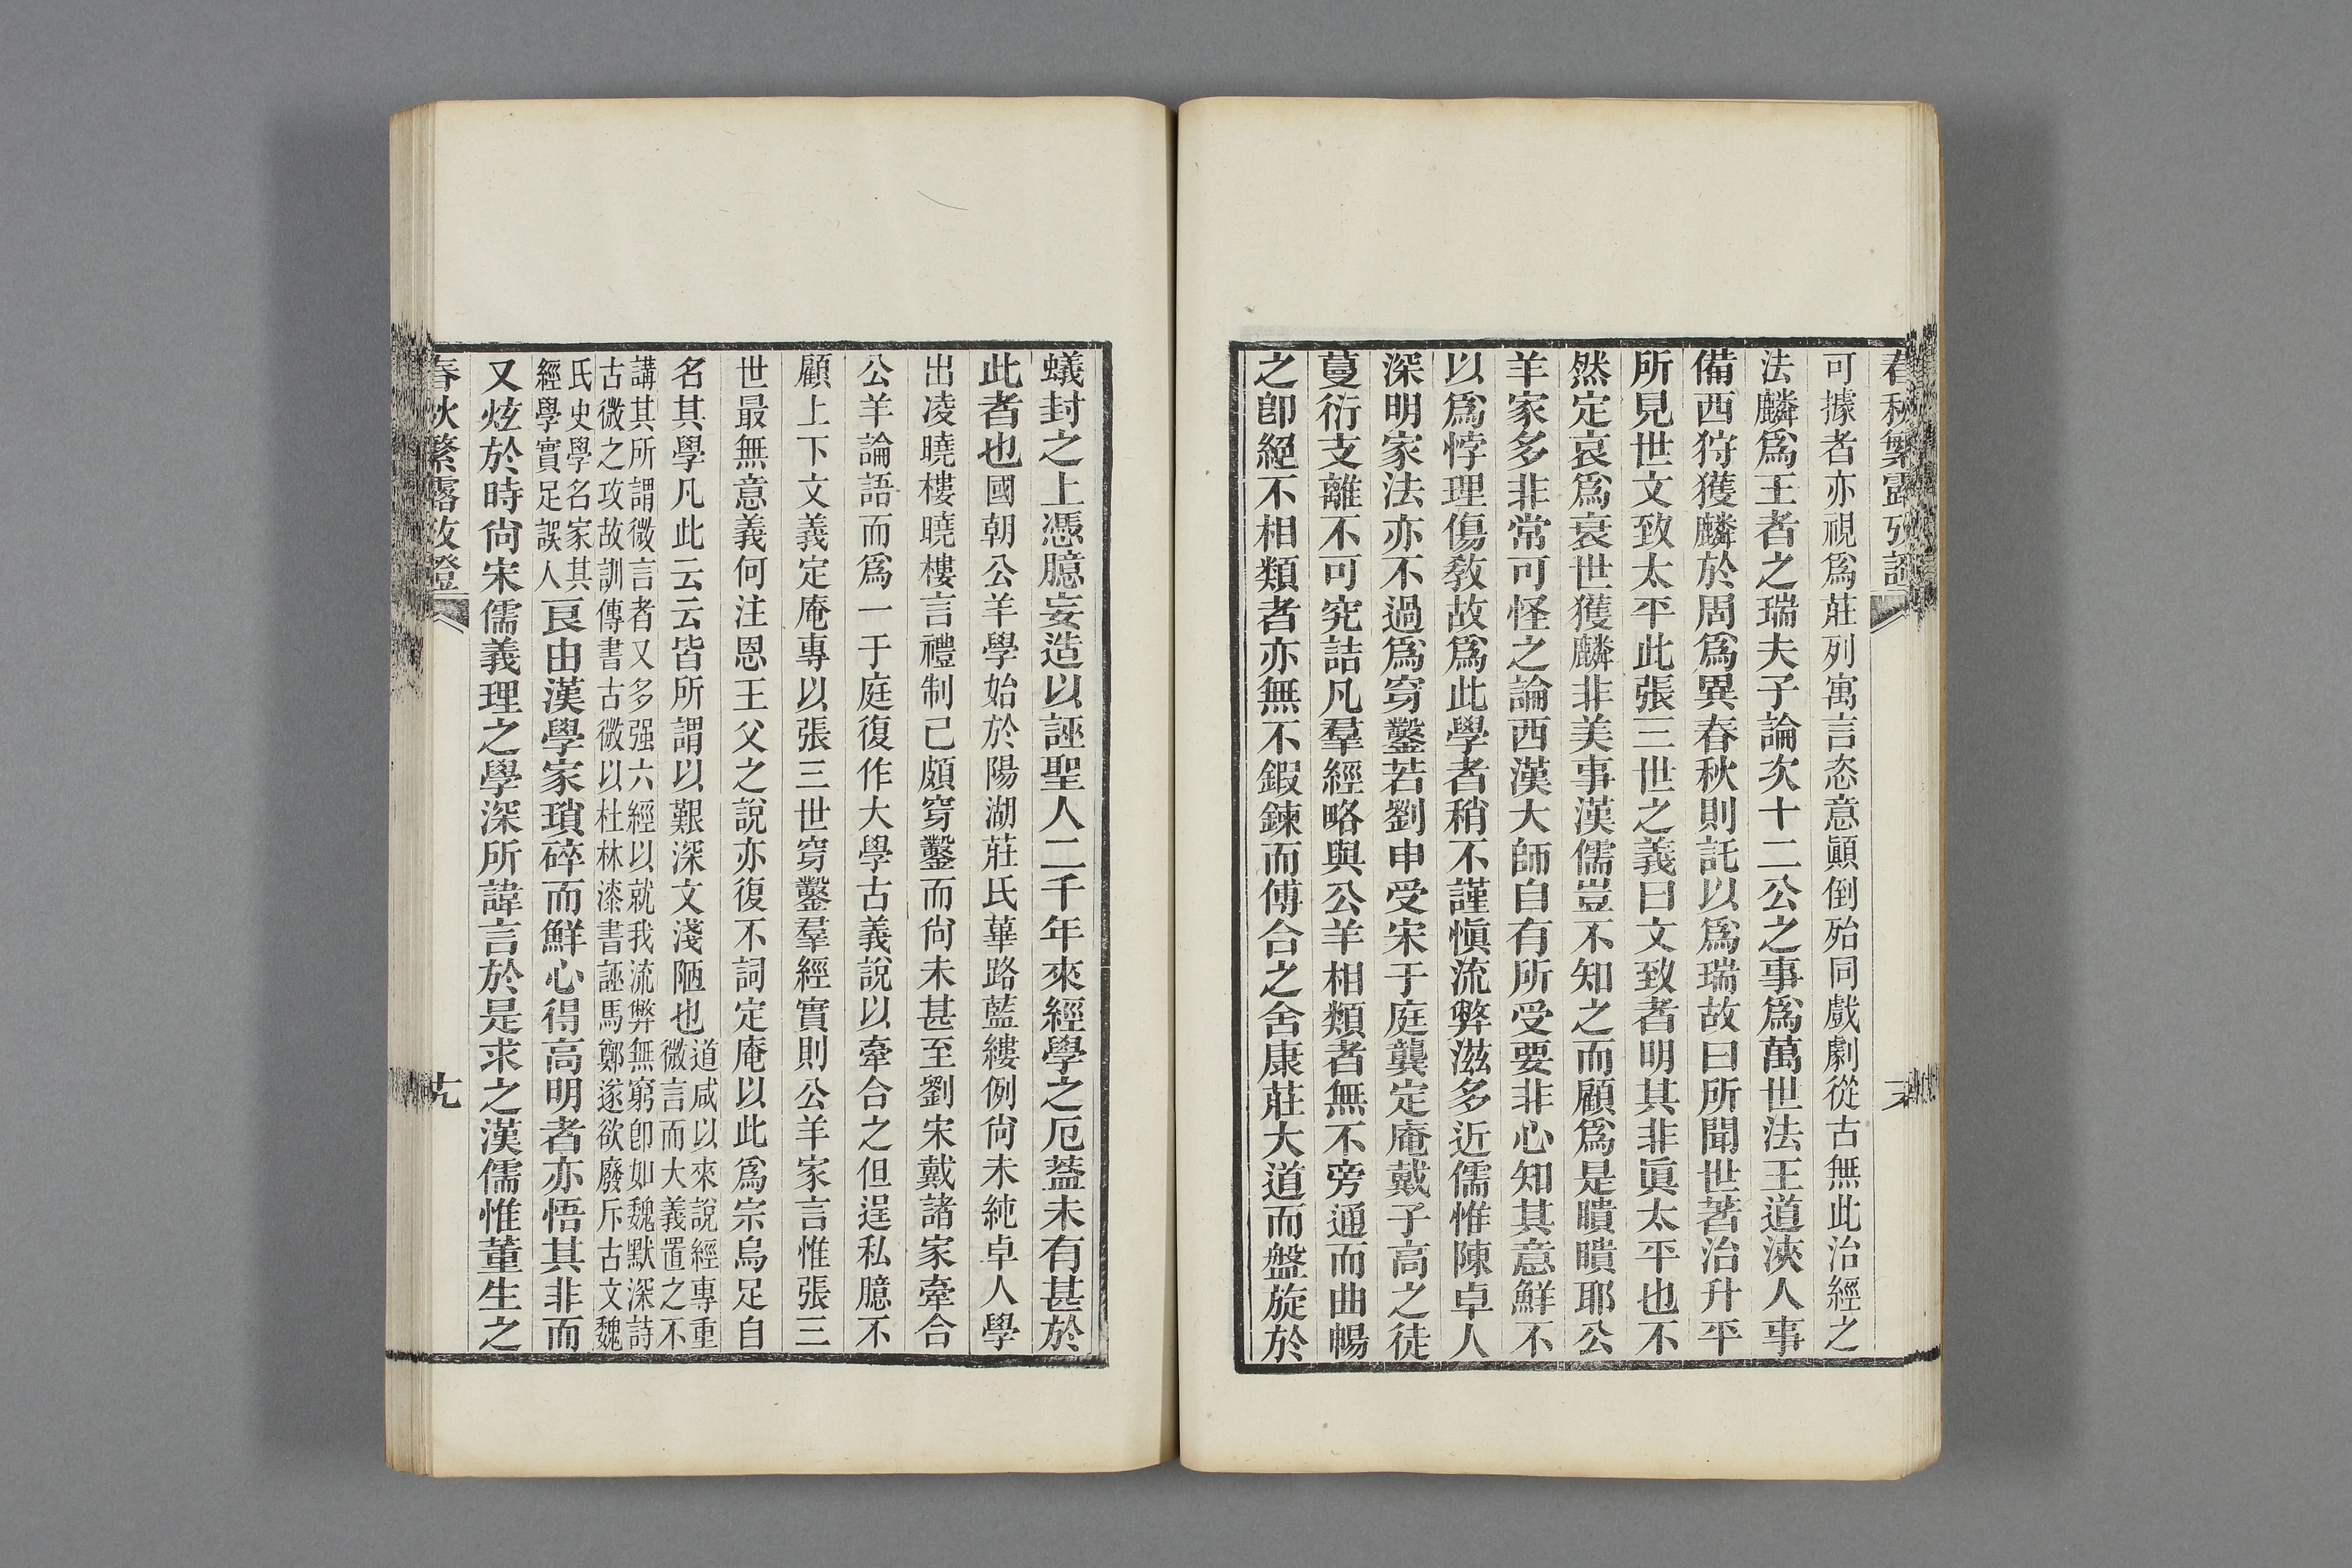 春秋繁露攷證
可據者亦視爲莊列寓言恣意顚倒殆同戲劇從古無此治經之
法麟爲王者之瑞夫子論次十二公之事爲萬世法王道浹人事
備西狩獲麟於周爲異春秋則託以爲瑞故曰所聞世著治升平
所見世文致太平此張三世之義曰文致者明其非眞太平也不
然定哀爲衰世獲麟非美事漢儒豈不知之而顧爲是瞶瞶耶公
羊家多非常可怪之論西漢大師自有所受要非心知其意鮮不
以爲悖理傷教故爲此學者稍不謹愼流弊滋多近儒惟陳卓人
深明家法亦不過爲穿鑿若劉申受宋于庭龔定庵戴子高之徒
蔓衍支離不可究詰凡羣經略與公羊相類者無不旁通而曲暢
之卽絕不相類者亦無不鍜鍊而傅合之舍康莊大道而盤旋於
蟻封之上憑臆妄造以誣聖人二千年來經學之厄蓋未有甚於
此者也國朝公羊學始於陽湖莊氏蓽路藍縷例尙未純卓人學
出凌曉樓曉樓言禮制己頗穿鑿而尙未甚至劉宋戴諸家牽合
公羊論語而爲一于庭復作大學古義說以牽合之但逞私臆不
顧上下文義定庵專以張三世穿鑿羣經實則公羊家言惟張三
世最無意義何注恩王父之說亦復不詞定庵以此爲宗烏足自
名其學凡此云云皆所謂以艱深文淺陋也道咸以來說經專重
微言而大義置之不
講其所謂微言者又多强六經以就我流弊無窮卽如魏默深詩
古微之攻故訓傳書古微以杜林漆書誣馬鄭遂欲廢斥古文魏
氏史學名家其
經學實足誤人良由漢學家瑣碎而鮮心得高明者亦悟其非而
又炫於時尙宋儒義理之學深所諱言於是求之漢儒惟董生之
春秋繁露攷證